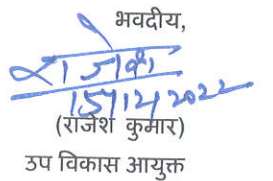 भवदीय,
राजेश
15/12/2022
(राजेश कुमार)
उप विकास आयुक्त